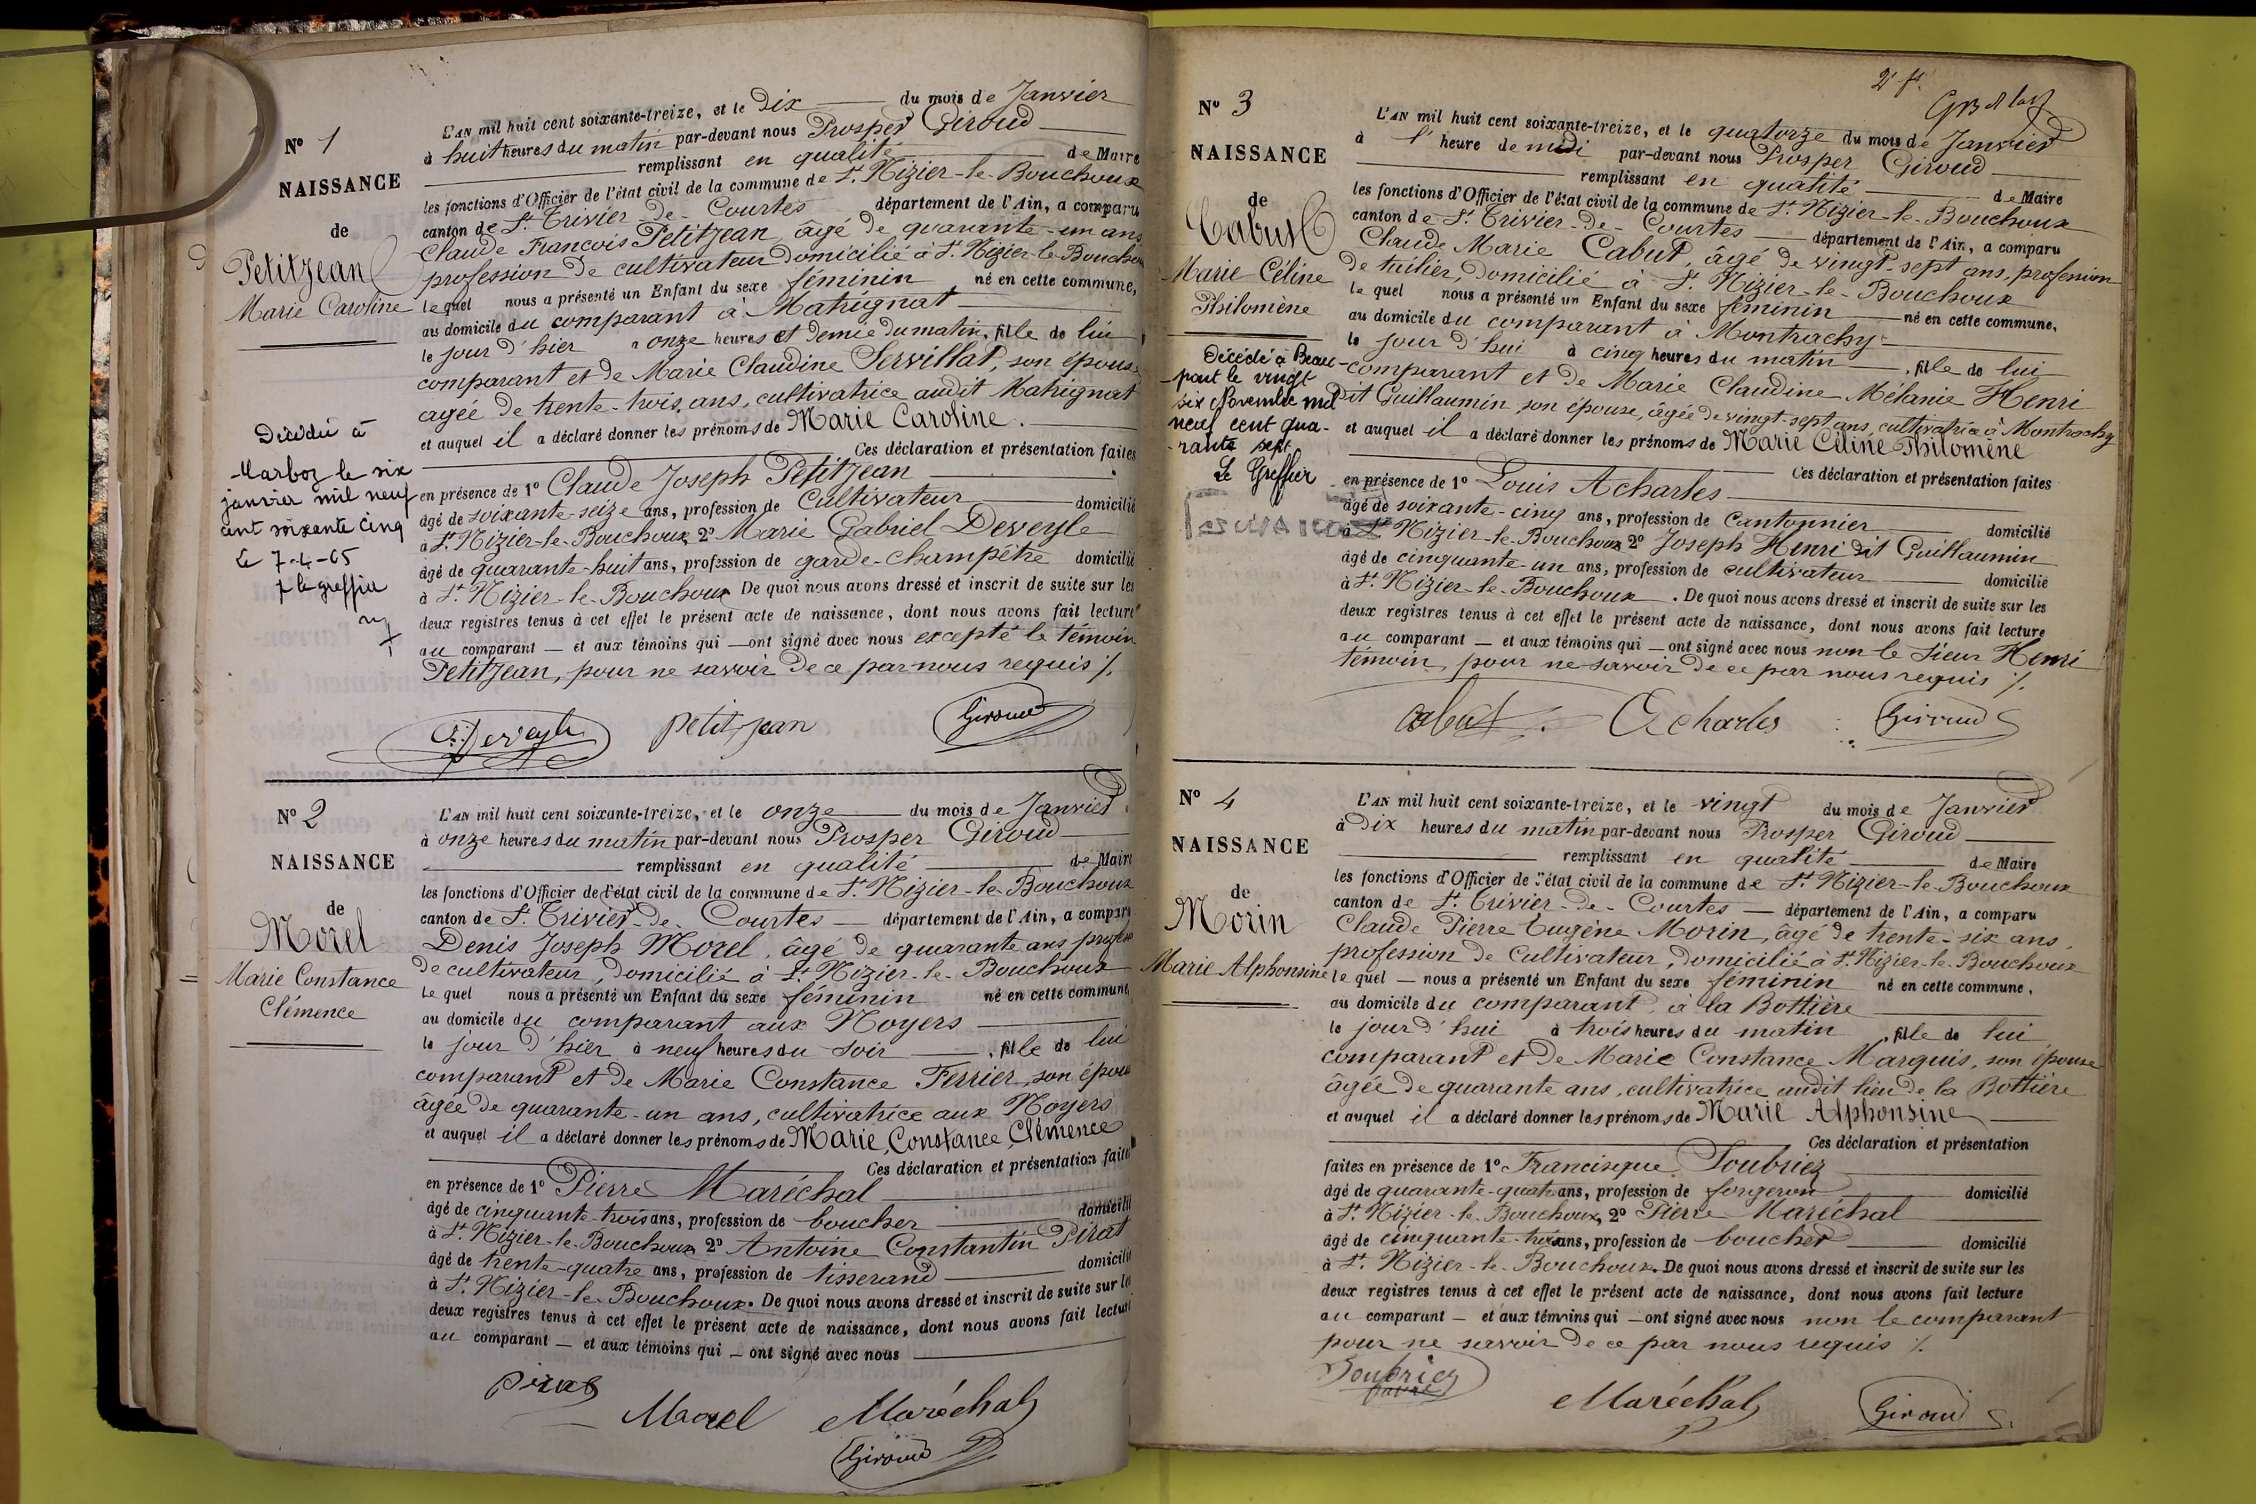 N° 1
NAISSANCE
de
Petitjean
Marie Caroline
Décédée à
Marboz le six
janvier mil neuf
cent soixante cinq
le 7-4-65
le greffier
L'AN mil huit cent soixante-treize, et le dix du mois de Janvier
à huit heures du matin par-devant nous Prosper Giroud
remplissant en qualité de Maire
les fonctions d'Officier de l'état civil de la commune de St. Nizier-le-Bouchoux
canton de St. Trivier-de-Courtes département de l'Ain, a comparu
Claude François Petitjean, âgé de quarante-un ans
profession de cultivateur domicilié à St. Nizier-le-Bouchoux
lequel nous a présenté un Enfant du sexe féminin né en cette commune,
au domicile du comparant à Matrignat
le jour d'hier à onze heures et demie du matin, fille de lui
comparant et de Marie Claudine Servillat, son épouse
agée de trente-trois ans, cultivatrice audit Matrignat
et auquel il a déclaré donner les prénoms de Marie Caroline.
Ces déclaration et présentation faites
en présence de 1° Claude Joseph Petitjean
âgé de soixante-seize ans, profession de Cultivateur domicilié
à St. Nizier-le-Bouchoux, 2° Marie Gabriel Deveyle
âgé de quarante-huit ans, profession de garde-champêtre domicilié
à St. Nizier-le-Bouchoux De quoi nous avons dressé et inscrit de suite sur les
deux registres tenus à cet effet le présent acte de naissance, dont nous avons fait lecture
au comparant — et aux témoins qui — ont signé avec nous excepté le témoin
Petitjean, pour ne savoir de ce par nous requis ./.
Deveyle petitjean Giroud
N° 2
NAISSANCE
de
Morel
Marie Constance
Clémence
L'AN mil huit cent soixante-treize, et le onze du mois de Janvier
à onze heures du matin par-devant nous Prosper Giroud
remplissant en qualité de Maire
les fonctions d'Officier de l'état civil de la commune de St. Nizier-le-Bouchoux
canton de St. Trivier-de-Courtes — département de l'Ain, a comparu
Denis Joseph Morel, âgé de quarante ans profession
de cultivateur, domicilié à St. Nizier-le-Bouchoux
lequel nous a présenté un Enfant du sexe féminin né en cette commune,
au domicile du comparant aux Noyers
le jour d'hier à neuf heures du soir, fille de lui
comparant et de Marie Constance Ferrier, son épouse
âgée de quarante-un ans, cultivatrice aux Noyers
et auquel il a déclaré donner les prénoms de Marie Constance Clémence
Ces déclaration et présentation faites
en présence de 1° Pierre Maréchal
âgé de cinquante-trois ans, profession de boucher domicilié
à St. Nizier-le-Bouchoux 2° Antoine Constantin Pirat
âgé de trente-quatre ans, profession de tisserand domicilié
à St. Nizier-le-Bouchoux. De quoi nous avons dressé et inscrit de suite sur les
deux registres tenus à cet effet le présent acte de naissance, dont nous avons fait lecture
au comparant — et aux témoins qui — ont signé avec nous
Pirat
Morel Maréchal
Giroud
2e ft.
N° 3
NAISSANCE
de
Cabut
Marie Céline
Philomène
Décédé à Beau-
pont le vingt
six Novembre mil
neuf cent qua-
rante sept
Le Greffier
L'AN mil huit cent soixante-treize, et le quatorze du mois de Janvier
à l'heure de midi par-devant nous Prosper Giroud
remplissant en qualité de Maire
les fonctions d'Officier de l'état civil de la commune de St. Nizier-le-Bouchoux
canton de St. Trivier-de-Courtes département de l'Ain, a comparu
Claude Marie Cabut, âgé de vingt-sept ans, profession
de tuilier domicilié à St. Nizier-le-Bouchoux
lequel nous a présenté un Enfant du sexe féminin né en cette commune,
au domicile du comparant à Montrachy
le jour d'hui à cinq heures du matin, fille de lui
comparant et de Marie Claudine Mélanie Henri
dit Guillaumin, son épouse, âgée de vingt-sept ans, cultivatrice à Montrachy
et auquel il a déclaré donner les prénoms de Marie Céline Philomène
Ces déclaration et présentation faites
en présence de 1° Louis Acharles
âgé de soixante-cinq ans, profession de Cantonnier domicilié
à St. Nizier-le-Bouchoux 2° Joseph Henri dit Guillaumin
âgé de cinquante-un ans, profession de cultivateur domicilié
à St. Nizier-le-Bouchoux. De quoi nous avons dressé et inscrit de suite sur les
deux registres tenus à cet effet le présent acte de naissance, dont nous avons fait lecture
au comparant — et aux témoins qui — ont signé avec nous non le sieur Henri
témoin, pour ne savoir de ce par nous requis ./.
Cabut Acharles Giroud
N° 4
NAISSANCE
de
Morin
Marie Alphonsine
L'AN mil huit cent soixante-treize, et le vingt du mois de Janvier
à dix heures du matin par-devant nous Prosper Giroud
remplissant en qualité de Maire
les fonctions d'Officier de l'état civil de la commune de St. Nizier-le-Bouchoux
canton de St. Trivier-de-Courtes — département de l'Ain, a comparu
Claude Pierre Eugène Morin, âgé de trente-six ans,
profession de Cultivateur, domicilié à St. Nizier-le-Bouchoux
lequel — nous a présenté un Enfant du sexe féminin né en cette commune,
au domicile du comparant, à la Bottière
le jour d'hui à trois heures du matin, fille de lui
comparant et de Marie Constance Marquis, son épouse
âgée de quarante ans, cultivatrice audit lieu de la Bottière
et auquel il a déclaré donner les prénoms de Marie Alphonsine
Ces déclaration et présentation
faites en présence de 1° Francisque Soubriez
âgé de quarante-quatre ans, profession de forgeron domicilié
à St. Nizier-le-Bouchoux, 2° Pierre Maréchal
âgé de cinquante-trois ans, profession de boucher domicilié
à St. Nizier-le-Bouchoux. De quoi nous avons dressé et inscrit de suite sur les
deux registres tenus à cet effet le présent acte de naissance, dont nous avons fait lecture
au comparant — et aux témoins qui — ont signé avec nous non le comparant
pour ne savoir de ce par nous requis ./.
Soubriez
Maréchal Giroud